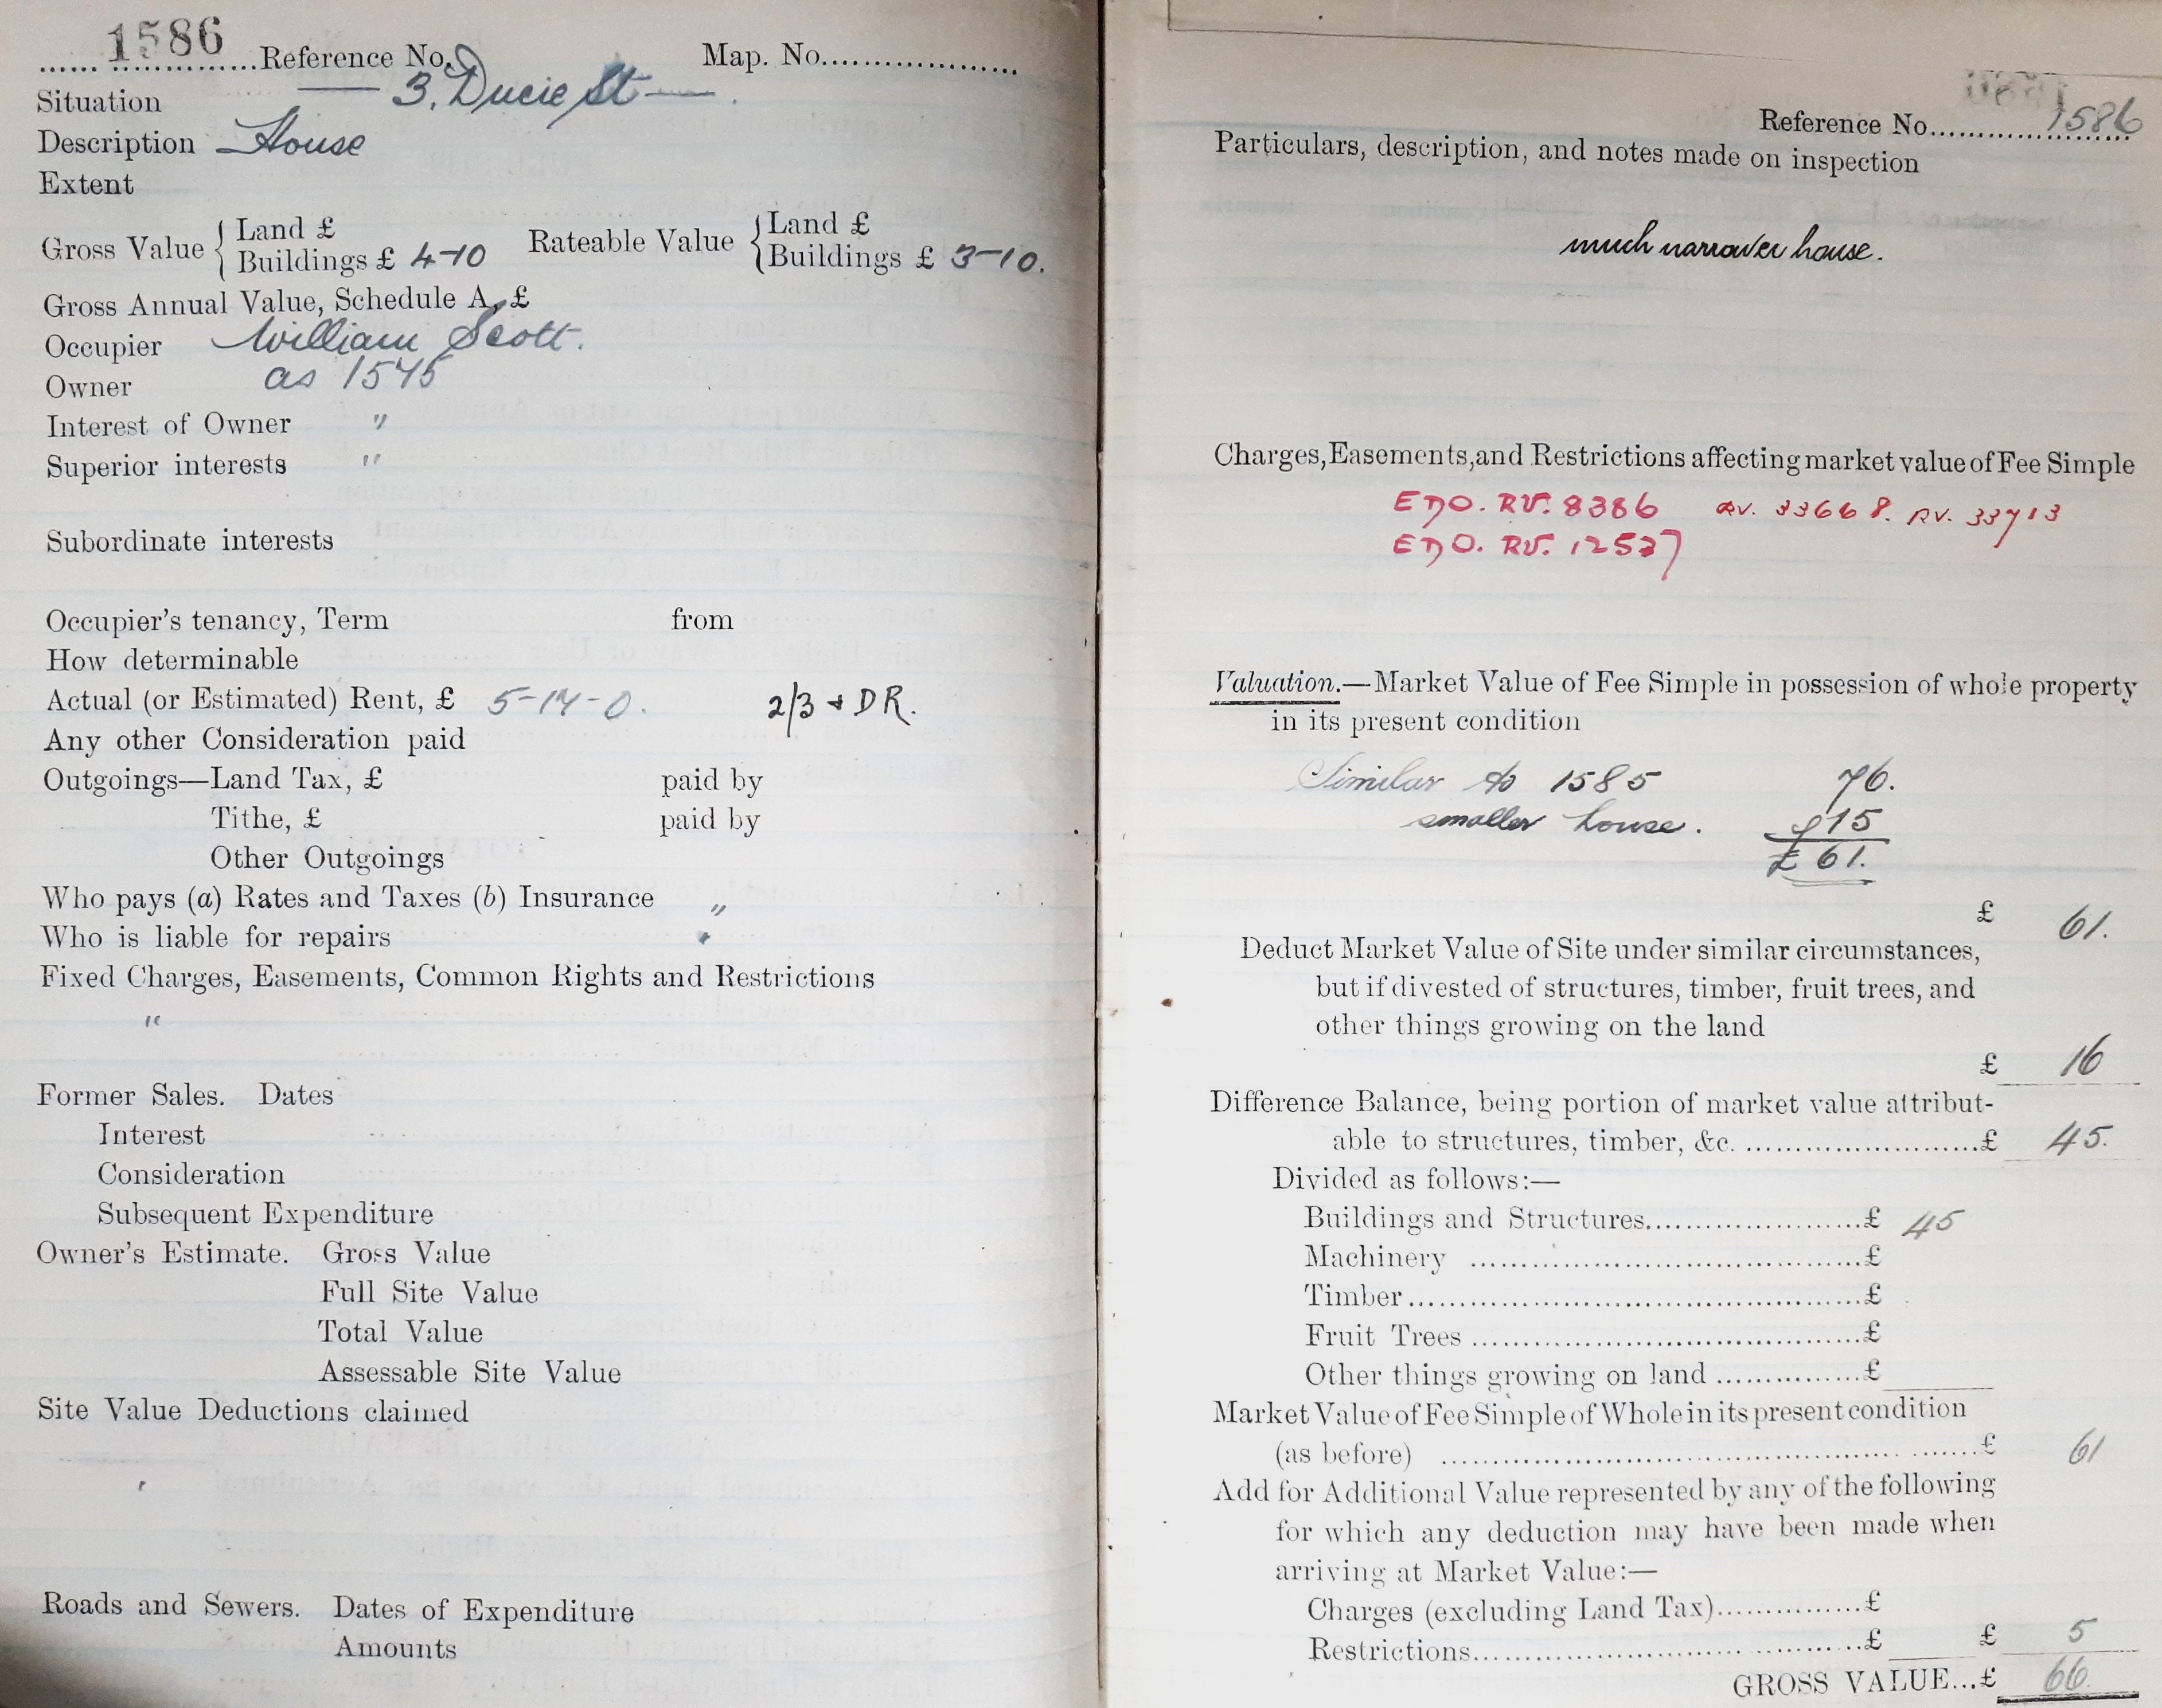 1586 Reference No. Map. No.
Situation — 3, Ducie St —
Description House
Extent
Gross Value { Land £ Rateable Value { Land £
Buildings £ 4-10 Buildings £ 3-10.
Gross Annual Value, Schedule A, £
Occupier William Scott.
Owner as 1545
Interest of Owner "
Superior interests "
Subordinate interests
Occupier's tenancy, Term from
How determinable
Actual (or Estimated) Rent, £ 5-17-0. 2/3 + DR.
Any other Consideration paid
Outgoings—Land Tax, £ paid by
Tithe, £ paid by
Other Outgoings
Who pays (a) Rates and Taxes (b) Insurance "
Who is liable for repairs "
Fixed Charges, Easements, Common Rights and Restrictions
"
Former Sales. Dates
Interest
Consideration
Subsequent Expenditure
Owner's Estimate. Gross Value
Full Site Value
Total Value
Assessable Site Value
Site Value Deductions claimed
Roads and Sewers. Dates of Expenditure
Amounts
Reference No. 1586
Particulars, description, and notes made on inspection
much narrower house.
Charges, Easements, and Restrictions affecting market value of Fee Simple
EDO. RV. 8386 RV. 33668. RV. 33713
EDO. RV. 12537
Valuation.—Market Value of Fee Simple in possession of whole property
in its present condition
Similar to 1585 76.
smaller house. 15
£ 61.
£ 61.
Deduct Market Value of Site under similar circumstances,
but if divested of structures, timber, fruit trees, and
other things growing on the land
£ 16
Difference Balance, being portion of market value attribut-
able to structures, timber, &c. £ 45.
Divided as follows:—
Buildings and Structures £ 45
Machinery £
Timber £
Fruit Trees £
Other things growing on land £
Market Value of Fee Simple of Whole in its present condition
(as before) £ 61
Add for Additional Value represented by any of the following
for which any deduction may have been made when
arriving at Market Value:—
Charges (excluding Land Tax) £
Restrictions £ £ 5
GROSS VALUE... £ 66.